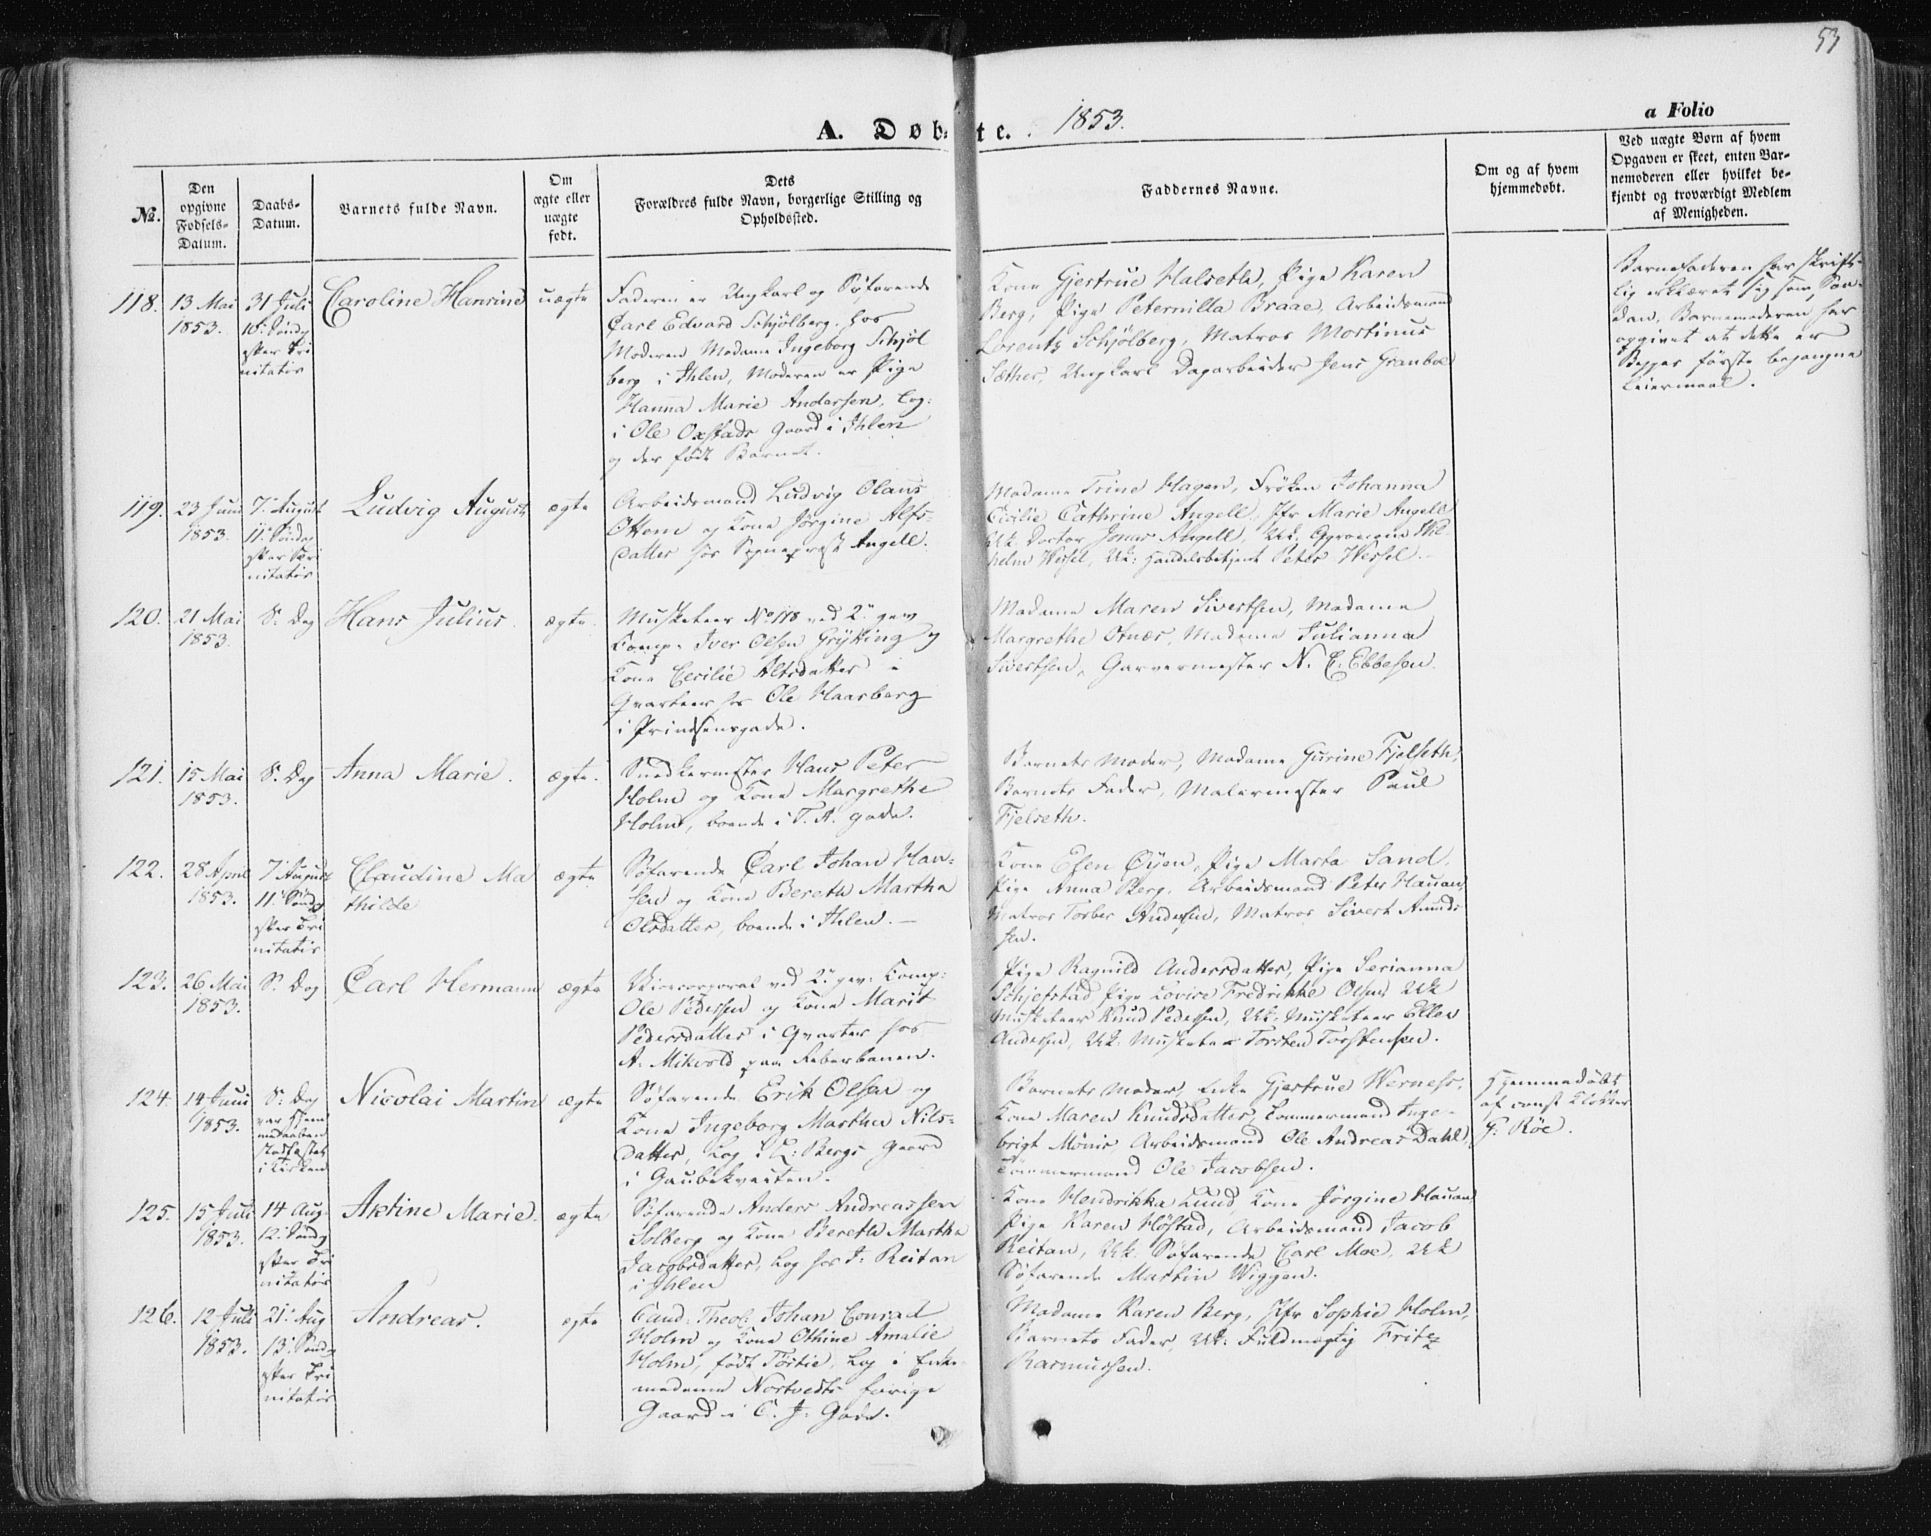 53
A. Døbte. 1853.
a Folio
№.
Den
opgivne
Fødsels-
Datum.
Daabs-
Datum.
Barnets fulde Navn.
Om
ægte eller
uægte
født.
Dets
Forældres fulde Navn, borgerlige Stilling og
Opholdssted.
Faddernes Navne.
Om og af hvem
hjemmedøbt.
Ved uægte Børn af hvem
Opgaven er skeet, enten Bar-
nemoderen eller hvilket be-
kjendt og troværdigt Medlem
af Menigheden.
118.
13 Mai
1853.
31 Juli
10: Søndg
efter Tri
nitatis
Caroline Hansine
uægte
Faderen er Ungkarl og Søfarende
Carl Edvard Schjølberg. hos
Moderen Madame Ingeborg Schjøl
berg i Ihlen, Moderen er Pige
Hanna Marie Andersen, Log:
i Ole Oxstads Gaard i Ihlen
og der født Barnet.
Kone Gjertrue Halseth, Pige Karen
Berg, Pige Peternilla Braae, Arbeidsmand
Lorentz Schjølberg, Matros Mortinus
Sæther, Ungkarl Dagarbeider Jens Granboe
Barnefaderen har skrift-
lig erklæret sig som Saa-
dan. Barnemoderen har
opgivet at dette er
Begges første begangne
Leiermaal.
119.
23 Juni
1853.
7: August
11: Søndag
efter Tri
nitatis
Ludvig August
ægte
Arbeidsmand Ludvig Olaus
Ottem og Kone Jørgine Alfs-
datter hos Sognepræst Angell.
Madame Trine Hagen, Frøken Johanna
Cicilie Cathrine Angell, Jfr Marie Angell
Uk. Doctor Jonas Angell, Uk. Agronom Wil
helm Wessel, Uk: Handelsbetjent Peter Wessel.
120.
21 Mai
1853.
S: Dag
Hans Julius.
ægte.
Musketeer No 118 ved 2: gev
Comp. Iver Olsen Grytting og
Kone Cecilie Altsdatter i
Qvarteer hos Ole Haarberg
i Prindsensgade.
Madame Maren Sivertsen, Madame
Margrethe Otnæs, Madame Julianna
Sivertsen, Garvermester N. C. Ebbesen.
121.
15 Mai
1853.
S: Dag
Anna Marie.
ægte.
Snedkermester Hans Peter
Holm og Kone Margrethe
Holm, boende i T. A. gade.
Barnets Moder, Madame Gurine Fjelseth,
Barnets Fader, Malermester Paul
Fjelseth.
122.
28 April
1853.
7: August
11: Søndg
efter Tri
nitatis
Claudine Ma
thilde
ægte
Søfarende Carl Johan Han-
sen og Kone Bereth Martha
Olsdatter, boende i Ihlen. —
Kone Elen Øyen, Pige Marta Sand,
Pige Anna Berg, Arbeidsmand Peter Hauan,
Matros Torber Andersen, Matros Sivert Amunds
sen.
123.
26 Mai
1853.
S: Dag
Carl Hermann
ægte
Vicecorporal ved 2: gev: Comp:
Ole Pedersen og Kone Marit
Pedersdatter i Qvarter hos
A. Mikvold paa Reberbanen.
Pige Ragnild Andersdatter, Pige Serianna
Schjefstad Pige Lovise Fredrikke Olsen, Uk
Musketeer Knud Pedersen, Uk. Musketeer Ellev
Andersen, Uk. Musketeer Torsten Torstensen.
124.
14 Juni
1853.
S: Dag
var Hjem
medaaben
stadfæstet
i Kirken
Nicolai Martin
ægte
Søfarende Erik Olsen og
Kone Ingeborg Martha Nils-
datter, Log i L: Bergs Gaard
i Gaubekveiten.
Barnets Moder, Enke Gjertrue Werness,
Kone Maren Knudsdatter, Tømmermand Inge-
brigt Mønis, Arbeidsmand Ole Andreas Dahl,
Tømmermand Ole Jacobsen.
Hjemmedøbt
af const Klokker
G: Røe.
125.
15 Juli
1853.
14 Aug.
12: Søndg
efter Tri
nitatis
Aktine Marie.
ægte
Søfarende Anders Andreassen
Solberg og Kone Bereth Martha
Jacobsdatter, Log hos J: Reitan
i Ihlen
Kone Hendrikka Lund, Kone Jørgine Hauan
Pige Karen Høstad, Arbeidsmand Jacob
Reitan, Uk: Søfarende Carl Moe, Uk
Søfarende Martin Wiggen.
126.
12 Juli
1853.
21: Aug
13: Søndg
efter Tri
nitatis
Andreas.
ægte
Cand: Theol: Johan Conrad
Holm og Kone Othine Amalie
Holm, født Tørtie, Log i Enke-
madame Nortvedts forrige
Gaard i C. J: Gade.
Madame Karen Berg, Jfr Sophie Holm,
Barnets Fader, Uk: Fuldmægtig Fritz
Rasmussen.